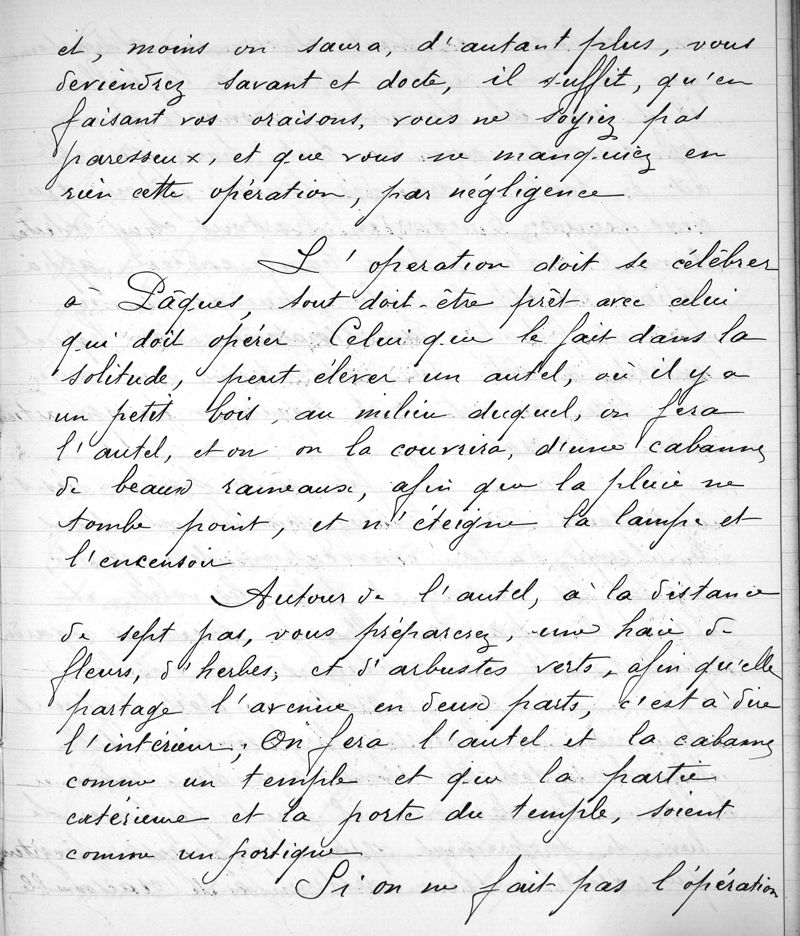 et, moins on saura, d'autant plus, vous
deviendrez savant et docte, il suffit, qu'en
faisant vos oraisons, vous ne soyiez pas
paresseux, et que vous ne manquiez en
rien cette opération, par négligence
L'operation doit se célébrer
à Pâques, tout doit-être prêt avec celui
qui doit opérer Celui que le fait dans la
solitude, peut élever un autel, où il y a
un petit bois, au milieu duquel, on fera
l'autel, et on on la couvrira, d'une cabanne
de beaux rameaux, afin que la pluie ne
tombe point, et n'éteigne la lampe et
l'encensoir
Autour de l'autel, à la distance
de sept pas, vous préparerez, une haie de
fleurs, d'herbes, et d'arbustes verts, afin qu'elle
partage l'avenue en deux parts, c'est à dire
l'intérieur; On fera l'autel et la cabanne
comme un temple et que la partie
extérieure et la porte du temple, soient
comme un portique
Si on ne fait pas l'opération